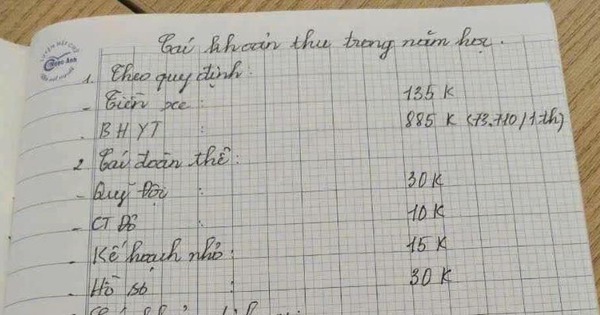 Các khoản thu trong năm học.
1. Theo quy định:
- Tiền xe : 135 K
- BHYT : 885 K (73.710/1 th)
2. Các đoàn thể:
- Quỹ Đội : 30 K
- CT Đỏ : 10 K
- Kế hoạch nhỏ : 15 K
- Hồ sơ : 30 K